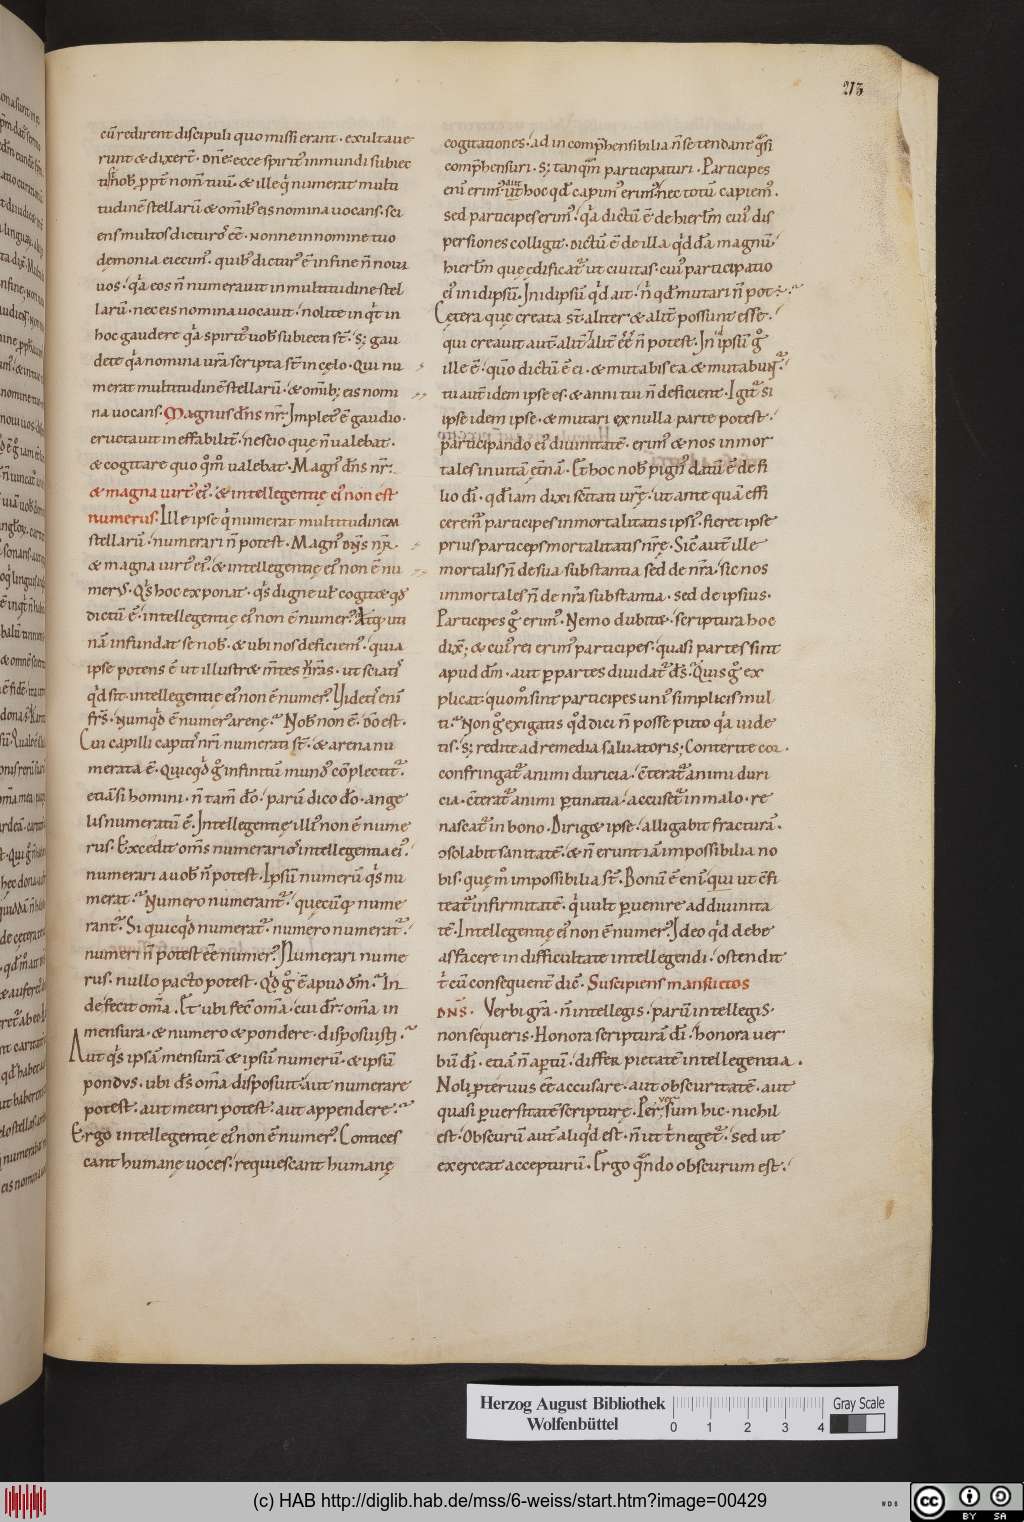 213
cū redirent discipuli quo missi erant · exultaue
runt & dixer̄t · Dn̄e· ecce sp̄iritꝰ inmundi subiec
ti s̄ nob̄ ꝓpt̄ nom̄ tuū · & ille q̇ numerat multi
tudinē stellarū & om̄ib; eis nomina uocans · sci
ens multos dicturoſ eē · Nonne innomine tuo
demonia eiecimꝰ · quibꝰ dicturꝰ ē infine n̄ noui
uos · q̇a eos n̄ numerauit in multitudine stel
larū · nec eis nomina uocauit · nolite in q̇t in
hoc gaudere q̇a spiritꝰ uob̄ subiecti st̄ · s; gau
dete q̇a nomina ur̄a scripta st̄ in cęlo · Qui nu
merat multitudinē stellarū · & om̄ib; eis nomi
na uocans · Magnus dn̄s nr̄ · Impletꝰ ē gaudio ·
eructauit ineffabilit̄ · nescio quę n̄ ualebat ·
& cogitare quo q̊m̊ ualebat · Magnꝰ dn̄s nr̄ ·
& magna uirtꝰ eiꝰ · & intellegentię eiꝰ non est
numerus · Ille ipse q̇ numerat multitudinem
stellarū · numerari n̄ potest · Magnꝰ dn̄s nr̄ ·
& magna uirtꝰ eiꝰ · & intellegentię eiꝰ non ē nu
merꝰ · Qͥs hoc exponat · qͥs digne uł cogitet qd̄
dictū ē · intellegentię eiꝰ non ē numerꝰ · Atq; uti
nā infundat se nob̄ · & ubi nos deficiemꝰ · quia
ipse potens ē ut illustret m̄tes ūr̄as · ut sciatiſ
q̇d sit · intellegentię eiꝰ non ē numerꝰ · Uideti enī
fr̄s · Nunq̇d ē numerꝰ arenę · Nob̄ non ē · d̄o est ·
Cui capilli capitiſ nr̄i numerati st̄ · & arena nu
merata ē · Quicq̇d g̊ infinitū mundꝰ cō̄plectitᷣ ·
etiā si homini · n̄ tam̄ d̄o · parū dico d̄o · ange
lis numeratū ē · Intellegentię illiꝰ non ē nume
rus · Excedit om̄s numerarioſ intellegentia eiꝰ ·
numerari a uob̄ n̄ potest · Ipsū numerū qͥs nu
merat · Numero numerantᷣ · quęcūq; nume
rantᷣ · Si quicq̇d numeratᷣ · numero numeratᷣ ·
numeri n̄ potest eē numerꝰ · Numerari nume
rus · nullo pacto potest · Q̇d g̊ ē apud d̄m · In
de fecit om̄a · Et ubi fec̄ om̄a · cui dr̄ · om̄a in
mensura · & numero & pondere · disposuisti ·
Aut qͥs ipsā mensurā & ipsū numerū · & ipsū
pondus · ubi d̄s om̄a disposuit · aut numerare
potest · aut metiri potest · aut appendere ·
Ergo intellegentię eiꝰ non ē numerꝰ · Contices
cant humanę uoces · requiescant humanę
cogitationes · ad incomp̄hensibilia n̄ se tendant q̊si
comp̄hensuri · s; tanq̊m participaturi · Participes
enī erimꝰ · hoc qd̄ capimꝰ erimꝰ nec totū capiemꝰ ·
sed participes erimꝰ · q̇a dictū ē de hierl̄m cuiꝰ dis
persiones colligit · dictū ē de illa q̇d d̄a magnū
hierl̄m quę ędificatᷣ ut ciuitas · cuiꝰ participatio
eiꝰ in idipsū · In idipsū q̇d ait · n̊ qd̄ mutari n̄ pot ÷ ·
Cętera quę creata st̄ aliter & alit̄ possunt esse ·
qui creauit aut̄ alit̄ & alit̄ eē n̄ potest · In ipsū g̊
ille ē · quō dictū ē ei · & mutabis ea & mutabunᷣ ·
tu aut̄ idem ipse es · & anni tui n̄ deficient · Igitᷣ si
ipse idem ipse · & mutari ex nulla parte potest ·
participando eiꝰ diuinitatē · erimꝰ & nos inmor
tales in uitā et̄nā · Et hoc nob̄ pignꝰ datū ē de fi
lio d̄i · qd̄ iam dixi sc̄itati ur̄ę · ut ante quā effi
ceremᷣ participes inmortalitatis ipsiꝰ · fieret ipse
prius particeps mortalitatis nr̄ę · Sic̄ aut̄ ille
mortalis n̄ de sua substantia sed de nr̄a · sic nos
inmortales n̄ de nr̄a substantia · sed de ipsius ·
Participes g̊ erimꝰ · Nemo dubitet · scriptura hoc
dix̄ · & cuiꝰ rei erimꝰ participes · quasi partes sint
apud d̄m · aut ꝑ partes diuidatᷣ d̄s · Q̇uis g̊ ex
plicat · quom̊ sint participes uniꝰ simplicis mul
ti · Non g̊ exigatis q̊d dici n̄ posse puto q̇a uide
tis · s; redite ad remedia saluatoris · Conterite cor ·
confringatᷣ animi duricia · c̄teratᷣ animi duri
cia · c̄teratᷣ animi ꝑtinatia · accusetᷣ in malo · re
nascatᷣ in bono · Dirigetᷣ ipse · alligabit fracturā ·
ɔsolabit sanitatē · & n̄ erunt iā impossibilia no
bis · quę m̊ impossibilia st̄ · Bonū ē enī · qui ut c̄fi
teatᷣ infirmitatē · q̇ uult ꝑuenire ad diuinita
tē · Intellegentię eiꝰ non ē numerꝰ · Ideo q̇d debe
as facere in difficultate intellegendi · ostendit
t̊ cū consequent̄ dic̄ · Suscipiens mansuetos
dn̄s · Verbi gr̄a · n̄ intellegis · parū intellegis ·
non sequeris · Honora scripturā d̄i · honora ver
bū d̄i · etiā n̄ aꝑtū · differ pietatē intellegentia ·
Noli ꝓteruus eē accusare · aut obscuritatē · aut
quasi ꝑuersitatē scripturę · Peruersum hic · nichil
est · Obscurū aut̄ aliq̇d est · n̄ ut t̊ negetᷣ · sed ut
exerceat accepturū · Ergo qn̄do obscurum est ·
Herzog August Bibliothek
Wolfenbüttel
0 1 2 3 4
Gray Scale
(c) HAB http://diglib.hab.de/mss/6-weiss/start.htm?image=00429
WDB
cc BY SA